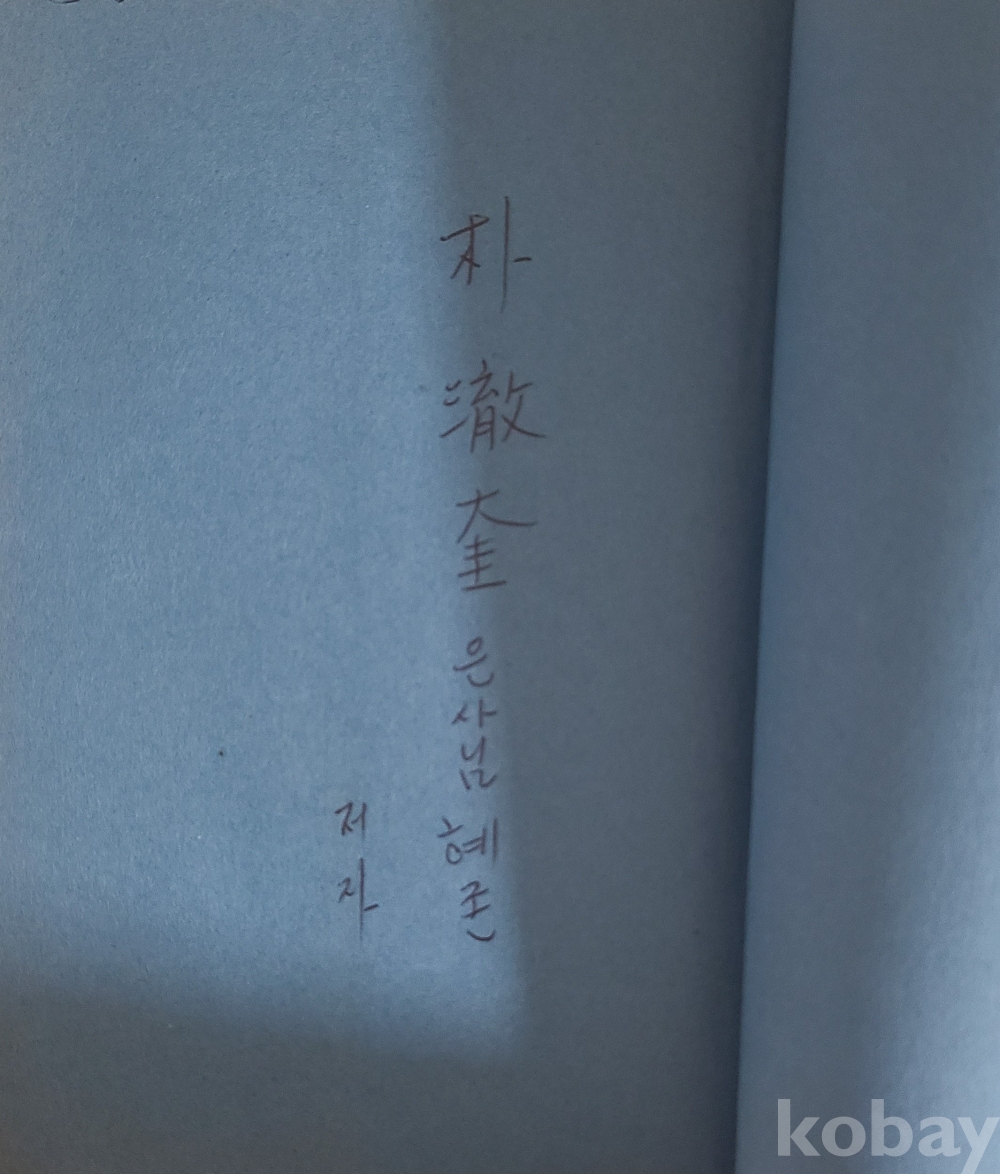 朴 澈 奎 은사님 혜존
저자
kobay